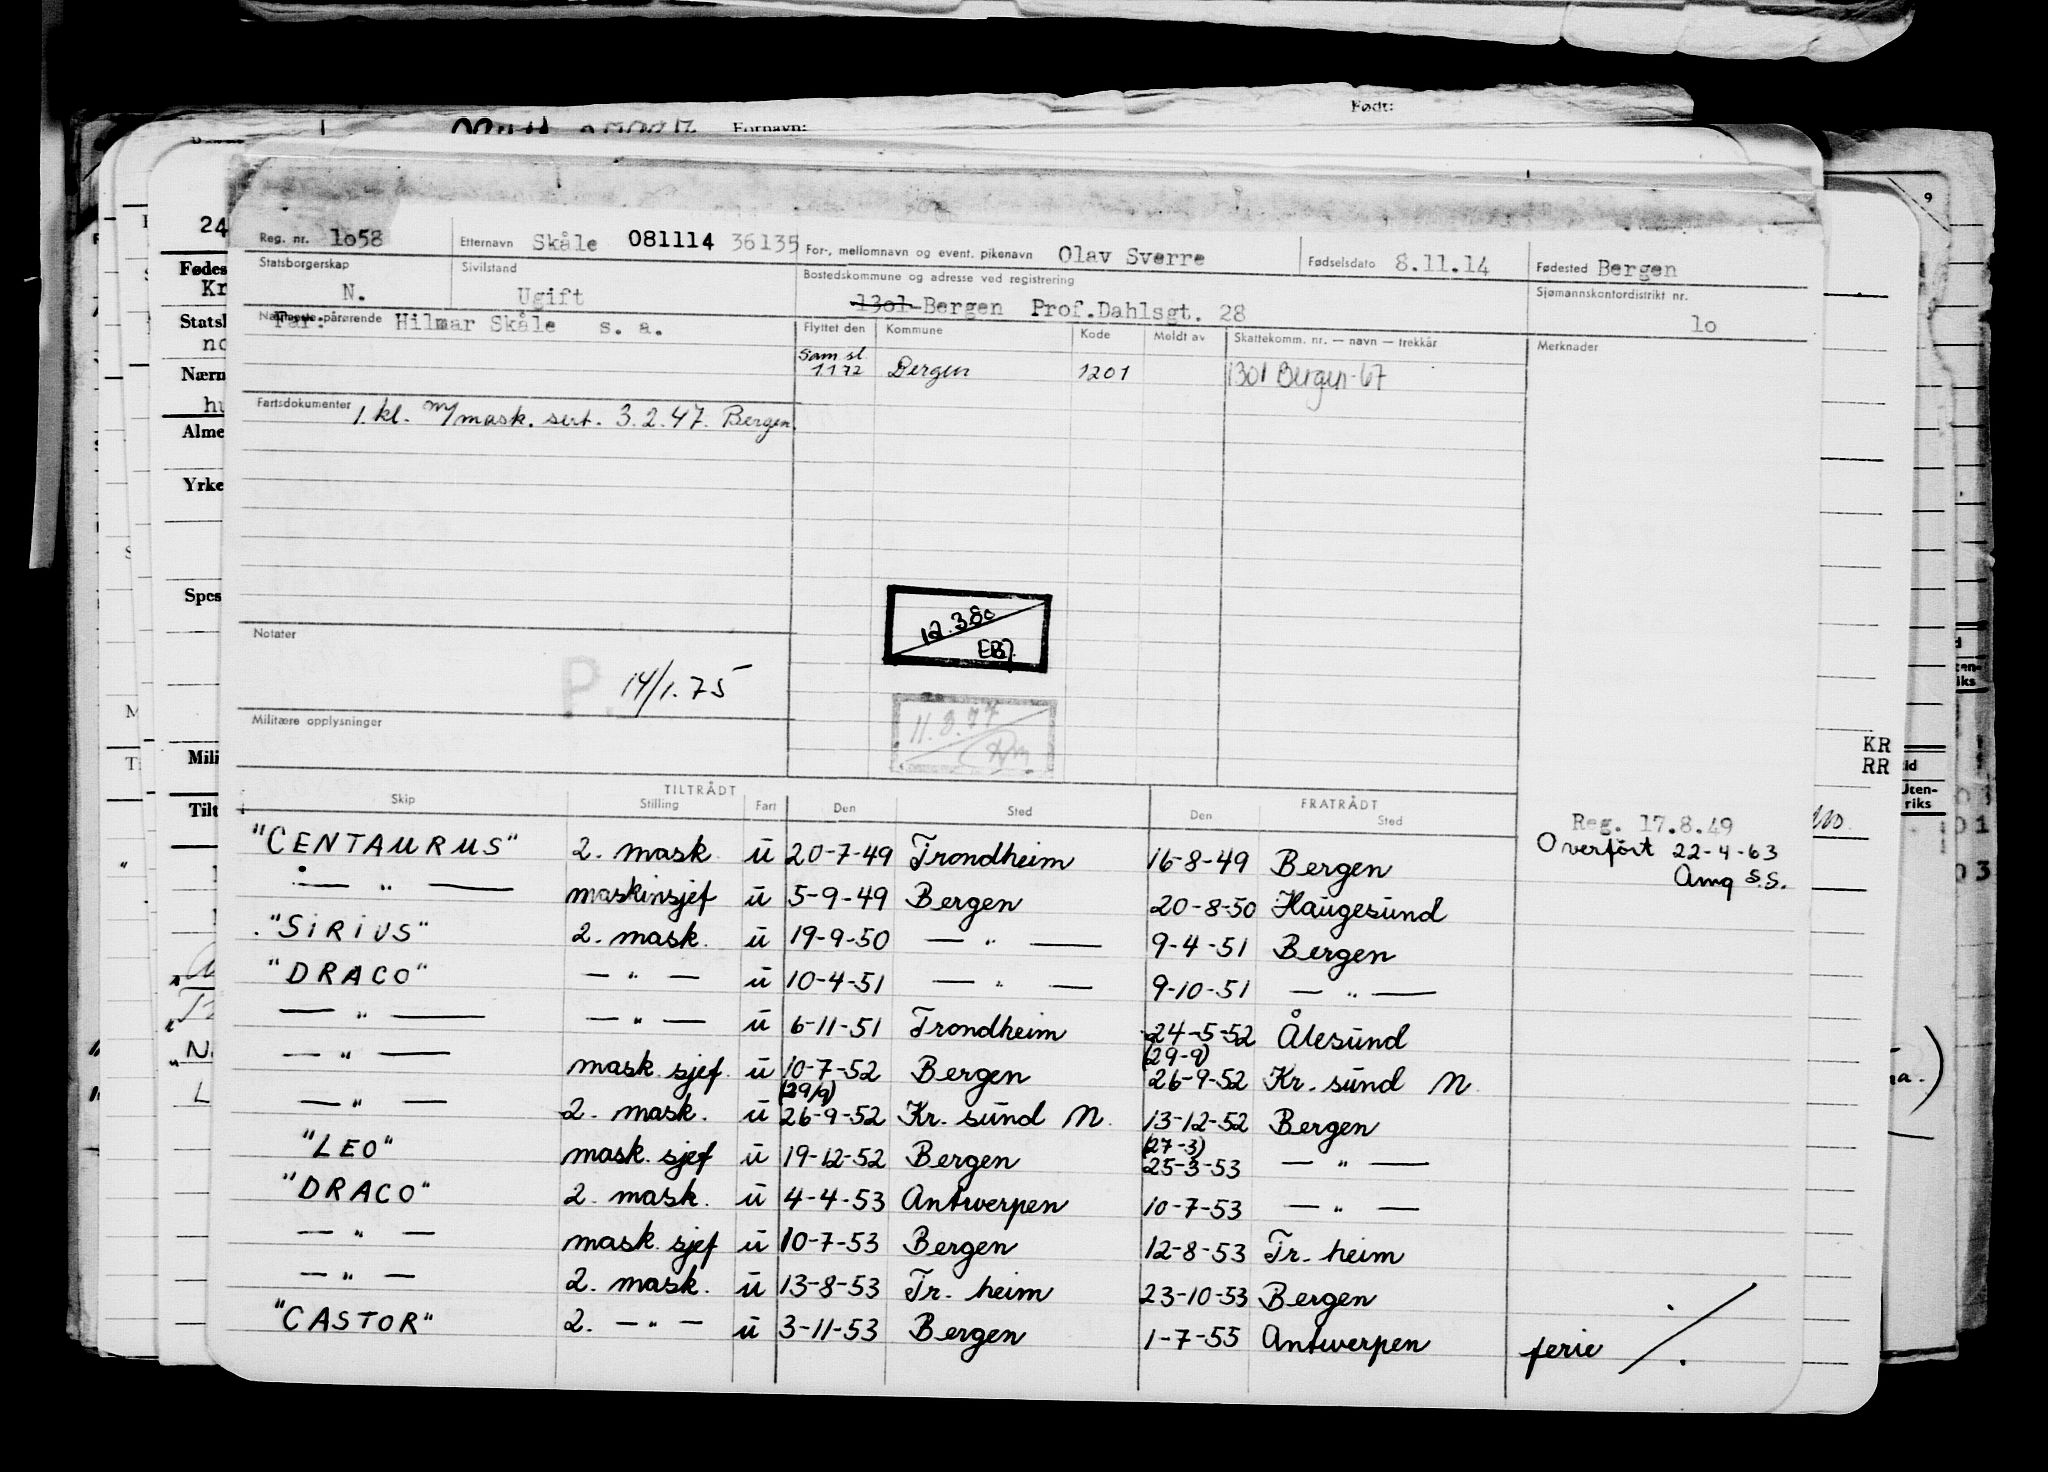 Født:
Fornavn:
9
Reg. nr. 1o58 Etternavn Skåle 081114 36135 For-, mellomnavn og event. pikenavn Olav Sverre Fødselsdato 8.11.14 Fødested Bergen
Statsborgerskap N. Sivilstand Ugift Bostedskommune og adresse ved registrering 13o1 Bergen Prof.Dahlsgt. 28 Sjømannskontordistrikt nr. 1o
Nærmeste pårørende Far: Hilmar Skåle s. a. Flyttet den Kommune Kode Meldt av Skattekomm. nr. — navn — trekkår Merknader
Sam sl.
1172 Bergen 1201 1301 Bergen-67
Fartsdokumenter 1. kl. m/mask. sert. 3.2.47. Bergen.
12.3.80
EBJ.
Notater
P. 14/1.75
Militære opplysninger
11.8.77
TILTRÅDT FRATRÅDT
Skip Stilling Fart Den Sted Den Sted
Reg. 17.8.49
Overført 22-4-63
Amg S.S.
"CENTAURUS" 2. mask. u 20-7-49 Trondheim 16-8-49 Bergen
— " — maskinsjef u 5-9-49 Bergen 20-8-50 Haugesund
"SIRIUS" 2. mask. u 19-9-50 — " — 9-4-51 Bergen
"DRACO" — " — u 10-4-51 — " — 9-10-51 — " —
— " — — " — u 6-11-51 Trondheim 24-5-52 Ålesund
(29-9)
— " — mask. sjef. u 10-7-52 Bergen 26-9-52 Kr. sund N
(29/9)
— " — 2. mask. u 26-9-52 Kr. sund N. 13-12-52 Bergen
(27-3)
"LEO" mask. sjef u 19-12-52 Bergen 25-3-53 — " —
"DRACO" 2. mask. u 4-4-53 Antwerpen 10-7-53 — " —
— " — mask. sjef u 10-7-53 Bergen 12-8-53 Tr. heim
— " — 2. mask. u 13-8-53 Tr. heim 23-10-53 Bergen
"CASTOR" 2. — " — u 3-11-53 Bergen 1-7-55 Antwerpen ferie ./.
24
Fødes
Kr
Statsb
no
Nærn
hu
Alme
Yrke
Spes
Mili
Tilt
KR
RR